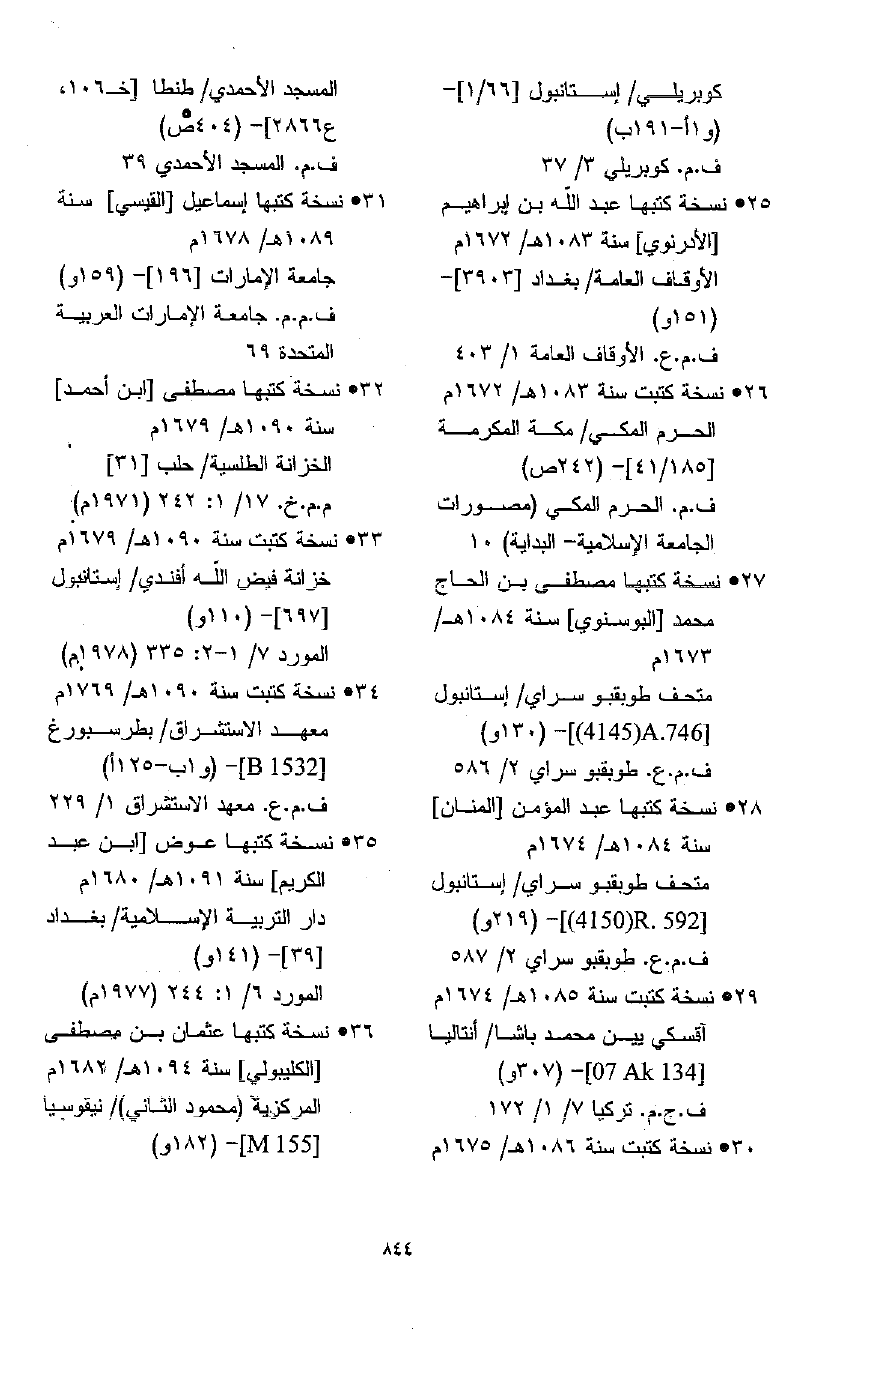 كوبريلي/ إستانبول [١/٦٦]-
(و١أ-١٩١ب)
ف.م. كوبريلي ٣/ ٣٧
٢٥• نسخة كتبها عبد الله بن إبراهيم
[الأدرنوي] سنة ١٠٨٣هـ/ ١٦٧٢م
الأوقاف العامة/ بغداد [٣٩٠٣]-
(١٥١و)
ف.م.ع. الأوقاف العامة ١/ ٤٠٣
٢٦• نسخة كتبت سنة ١٠٨٣هـ/ ١٦٧٢م
الحرم المكي/ مكة المكرمة
[٤١/١٨٥]- (٢٤٢ص)
ف.م. الحرم المكي (مصورات
الجامعة الإسلامية- البداية) ١٠
٢٧• نسخة كتبها مصطفى بن الحاج
محمد [البوسنوي] سنة ١٠٨٤هـ/
١٦٧٣م
متحف طوبقبو سراي/ إستانبول
[4145)A.746)]- (١٣٠و)
ف.م.ع. طوبقبو سراي ٢/ ٥٨٦
٢٨• نسخة كتبها عبد المؤمن [المنان]
سنة ١٠٨٤هـ/ ١٦٧٤م
متحف طوبقبو سراي/ إستانبول
[4150)R. 592)]- (٢١٩و)
ف.م.ع. طوبقبو سراي ٢/ ٥٨٧
٢٩• نسخة كتبت سنة ١٠٨٥هـ/ ١٦٧٤م
آقسكي بيبن محمد باشا/ أنتاليا
[07 Ak 134]- (٣٠٧و)
ف.ج.م. تركيا ٧/ ١/ ١٧٢
٣٠• نسخة كتبت سنة ١٠٨٦هـ/ ١٦٧٥م
المسجد الأحمدي/ طنطا [خـ١٠٦،
ع٢٨٦٦]- (٤٠٤ص)
ف.م. المسجد الأحمدي ٣٩
٣١• نسخة كتبها إسماعيل [القيسي] سنة
١٠٨٩هـ/ ١٦٧٨م
جامعة الإمارات [١٩٦]- (١٥٩و)
ف.م.م. جامعة الإمارات العربية
المتحدة ٦٩
٣٢• نسخة كتبها مصطفى [ابن أحمد]
سنة ١٠٩٠هـ/ ١٦٧٩م
الخزانة الطلسية/ حلب [٣١]
م.م.خ. ١٧/ ١: ٢٤٢ (١٩٧١م)
٣٣• نسخة كتبت سنة ١٠٩٠هـ/ ١٦٧٩م
خزانة فيض الله أفندي/ إستانبول
[٦٩٧]- (١١٠و)
المورد ٧/ ١-٢: ٣٣٥ (١٩٧٨م)
٣٤• نسخة كتبت سنة ١٠٩٠هـ/ ١٧٦٩م
معهد الاستشراق/ بطرسبورغ
[B 1532]- (و١ب-١٢٥أ)
ف.م.ع. معهد الاستشراق ١/ ٢٢٩
٣٥• نسخة كتبها عوض [ابن عبد
الكريم] سنة ١٠٩١هـ/ ١٦٨٠م
دار التربية الإسلامية/ بغداد
[٣٩]- (١٤١و)
المورد ٦/ ١: ٢٤٤ (١٩٧٧م)
٣٦• نسخة كتبها عثمان بن مصطفى
[الكليبولي] سنة ١٠٩٤هـ/ ١٦٨٢م
المركزية (محمود الثاني)/ نيقوسيا
[M 155]- (١٨٢و)
٨٤٤